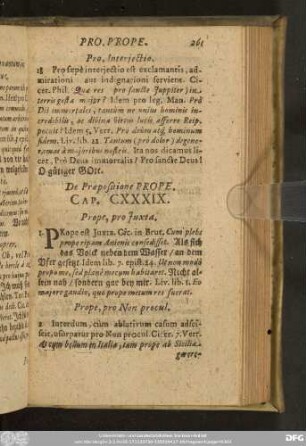 PRO. PROPE. 261
Pro, Interjectio.
18 Pro sępè interjectio est exclamantis, ad-
mirationi aut indignationi serviens. Ci-
cer. Phil. Quæ res pro sancte Juppiter) in
terris gesta major? Idem pro leg. Man. Pro
Dii immortales, tantum ne unius hominis in-
credibilis, ac divina virtus lucis afferre Reip.
potuit? Idem 5. Verr. Pro deûm atq; hominum
fidem. Liv. lib. 22. Tantum (pro dolor) degene-
ramus à majoribus nostris. Ita nos dicamus li-
cet, Prô Deus immortalis! Pro sancte Deus!
O gütiger GOtt.
De Præpositione PROPE.
CAP. CXXXIX.
Prope, pro Juxta.
1 PRope est Juxta. Cic. in Brut. Cum plebs
prope ripam Anienis consedisset. Als sich
das Volck neben dem Wasser / an dem
Ufer gesetzt. Idem lib. 7. epist. 24. Non modò
prope me, sed planè mecum habitaret. Nicht al-
lein nah / sondern gar bey mir. Liv. lib. 1. Eo
major e gaudio, quo prope metum res fuerat.
Prope, pro Non procul.
2 Interdum, cùm ablativum casum adsci-
scit, usurpatur pro Non procul. Cicer. 7. Verr.
bellum in Italia, tam prope ab Sicilia.